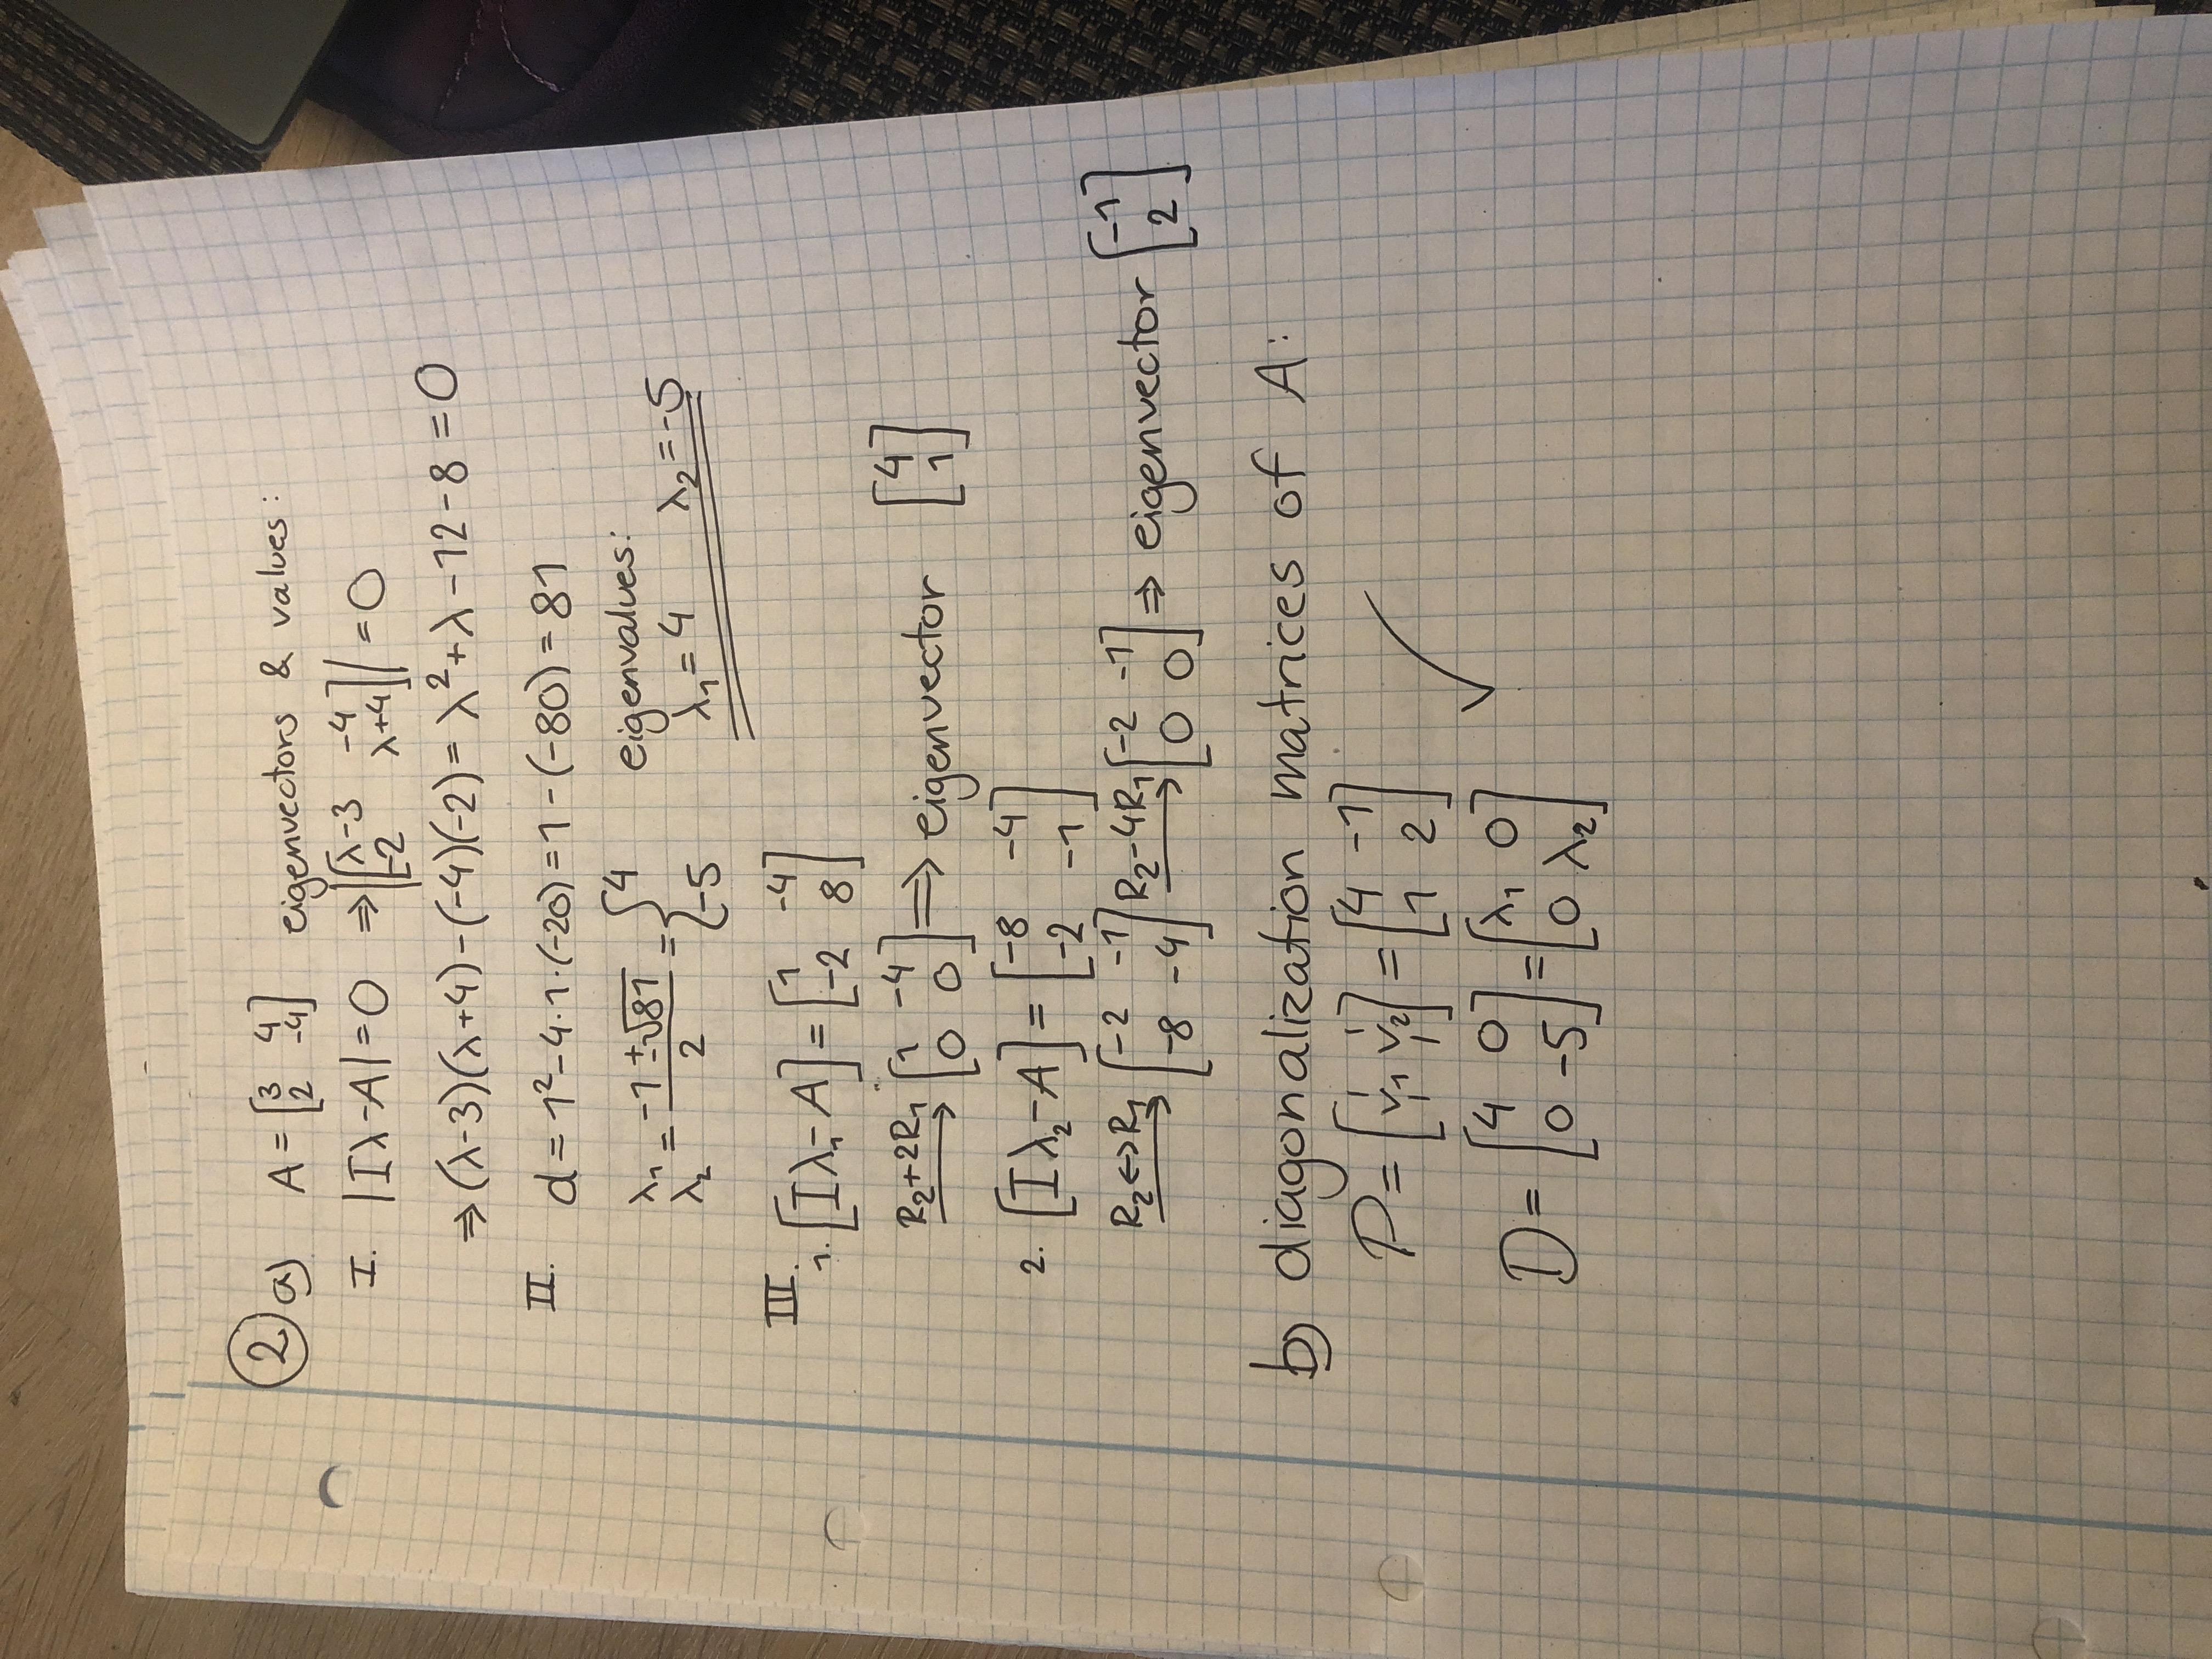 2 a) A = [3 4; 2 -4] eigenvectors & values:
I. |Iλ-A|=0 ⇒ |[λ-3 -4; -2 λ+4]| = 0
⇒ (λ-3)(λ+4)-(-4)(-2) = λ²+λ-12-8 = 0
II. d = 1²-4·1·(-20) = 1-(-80) = 81
λ₁ λ₂ = (-1±√81)/2 = {4 -5 eigenvalues:
λ₁=4 λ₂=-5
III.
1. [Iλ₁-A] = [1 -4; -2 8]
R₂+2R₁ → [1 -4; 0 0] ⇒ eigenvector [4; 1]
2. [Iλ₂-A] = [-8 -4; -2 -1]
R₂↔R₁ → [-2 -1; -8 -4] R₂-4R₁ → [-2 -1; 0 0] ⇒ eigenvector [-1; 2]
b) diagonalization matrices of A:
P = [v₁ v₂] = [4 -1; 1 2] ✓
D = [4 0; 0 -5] = [λ₁ 0; 0 λ₂]